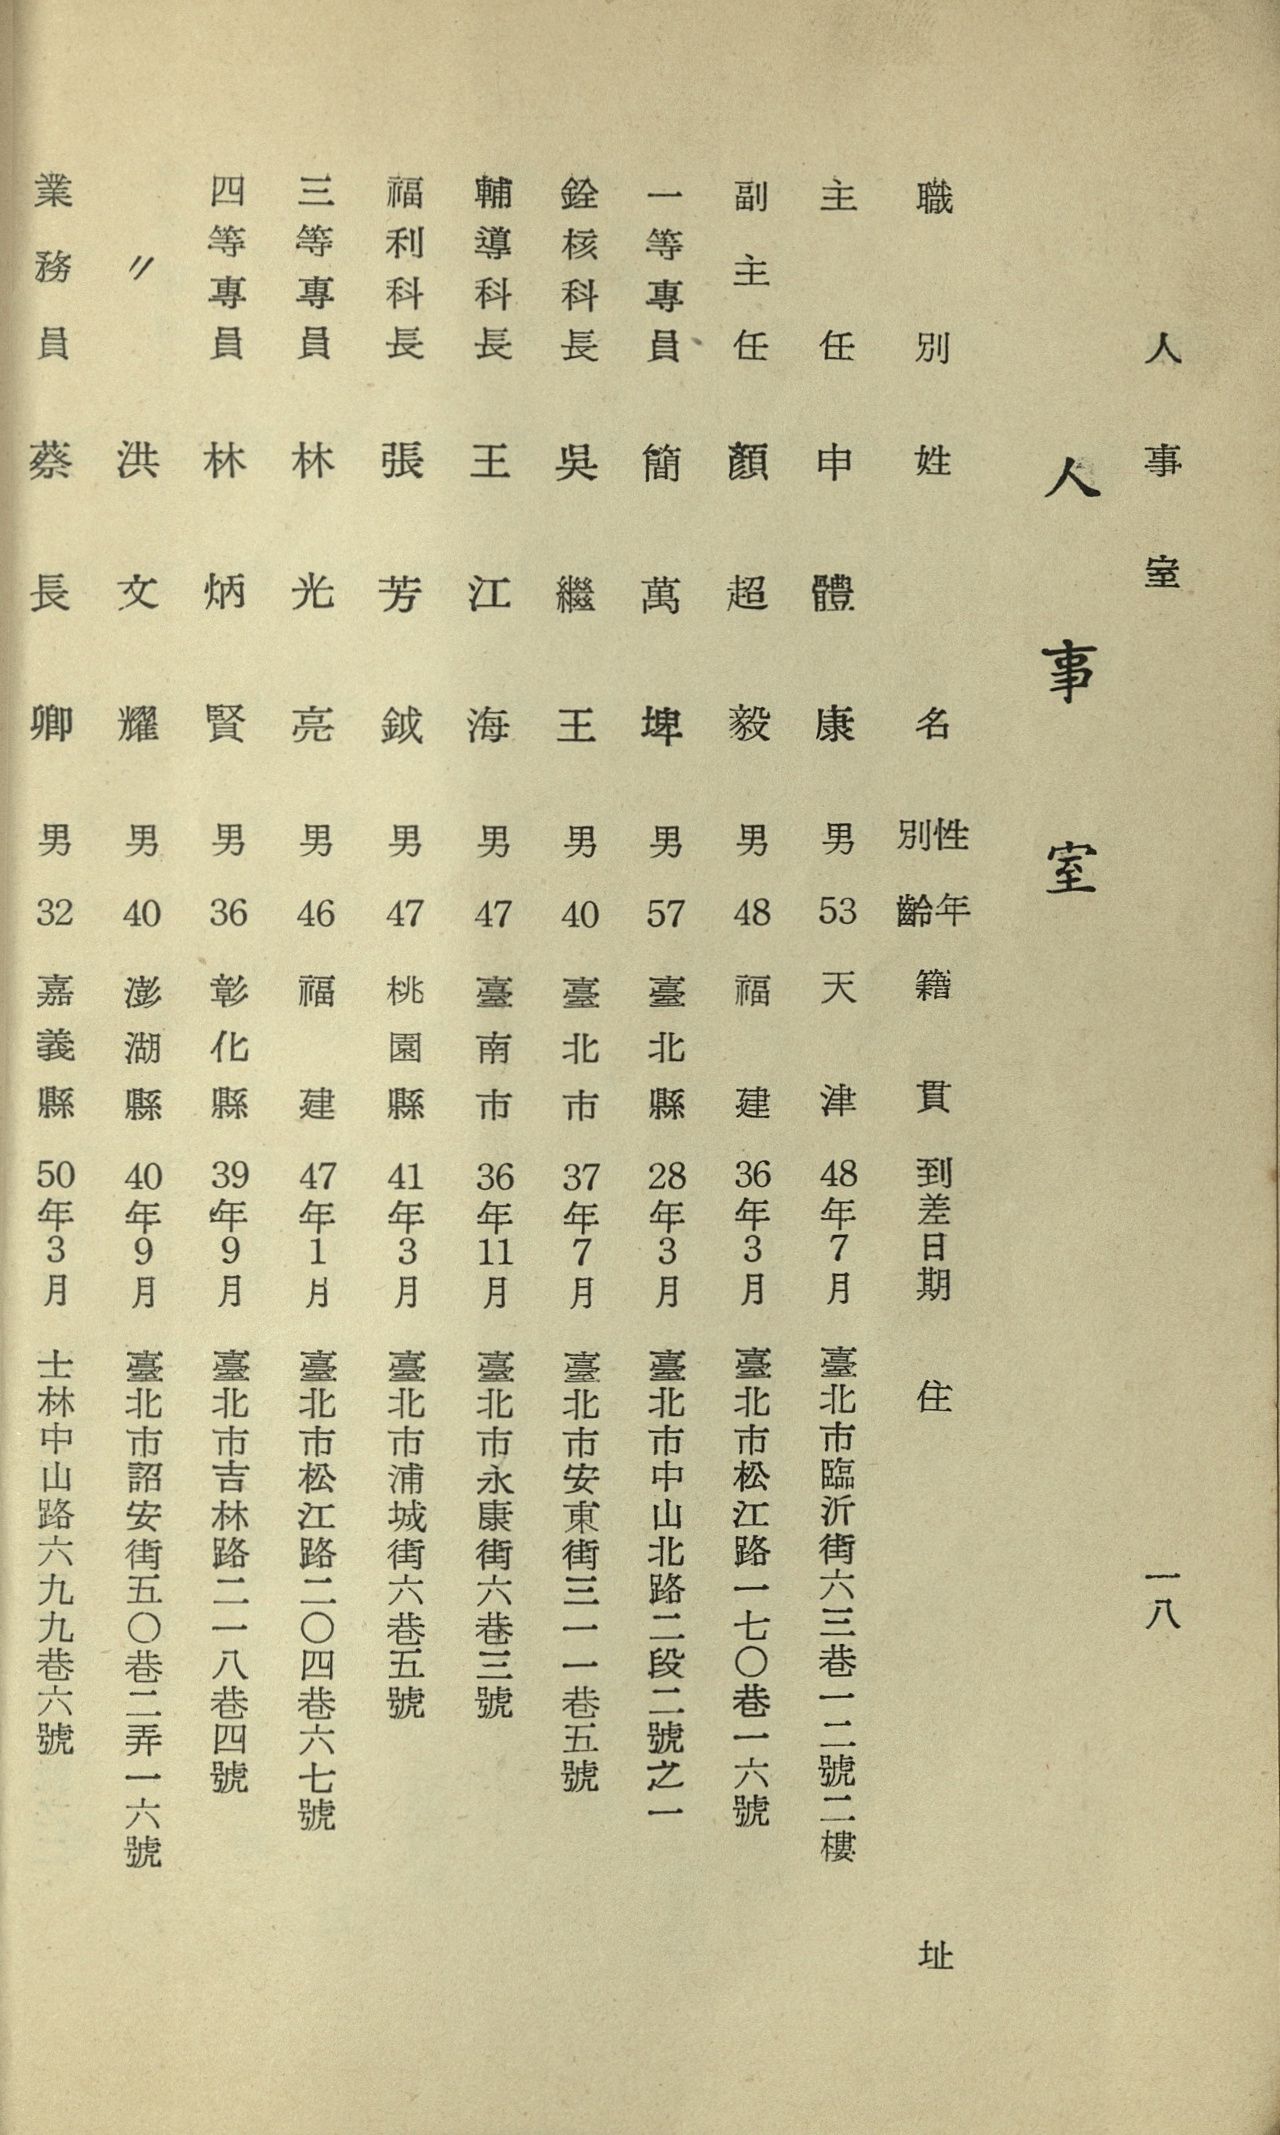 人事室
一八
人事室
職別 姓名 性別 年齡 籍貫 到差日期 住址
主任 申體康 男 53 天津 48年7月 臺北市臨沂街六三巷一二號二樓
副主任 顏超毅 男 48 福建 36年3月 臺北市松江路一七〇巷一六號
一等專員 簡萬埤 男 57 臺北縣 28年3月 臺北市中山北路二段二號之一
銓核科長 吳繼王 男 40 臺北市 37年7月 臺北市安東街三一一巷五號
輔導科長 王江海 男 47 臺南市 36年11月 臺北市永康街六巷三號
福利科長 張芳鉞 男 47 桃園縣 41年3月 臺北市浦城街六巷五號
三等專員 林光亮 男 46 福建 47年1月 臺北市松江路二〇四巷六七號
四等專員 林炳賢 男 36 彰化縣 39年9月 臺北市吉林路二一八巷四號
〃 洪文耀 男 40 澎湖縣 40年9月 臺北市詔安街五〇巷二弄一六號
業務員 蔡長卿 男 32 嘉義縣 50年3月 士林中山路六九九巷六號